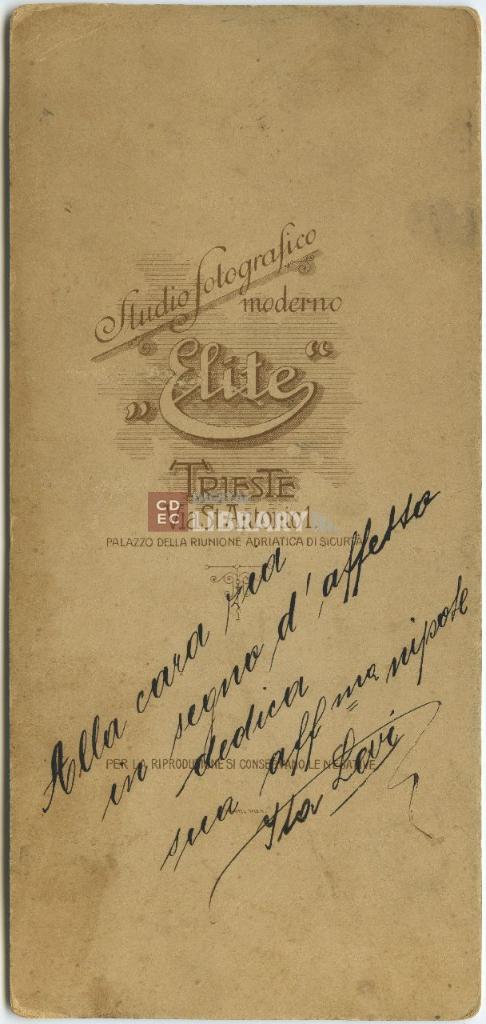 Studio fotografico
moderno
„Elite“
TRIESTE
Via S. Antonio 1.
CD EC DIGITAL LIBRARY
PALAZZO DELLA RIUNIONE ADRIATICA DI SICURTÀ
Alla cara zia
in segno d'affetto
dedica
sua aff ma nipote
PER LA RIPRODUZIONE SI CONSERVANO LE NEGATIVE
Levi